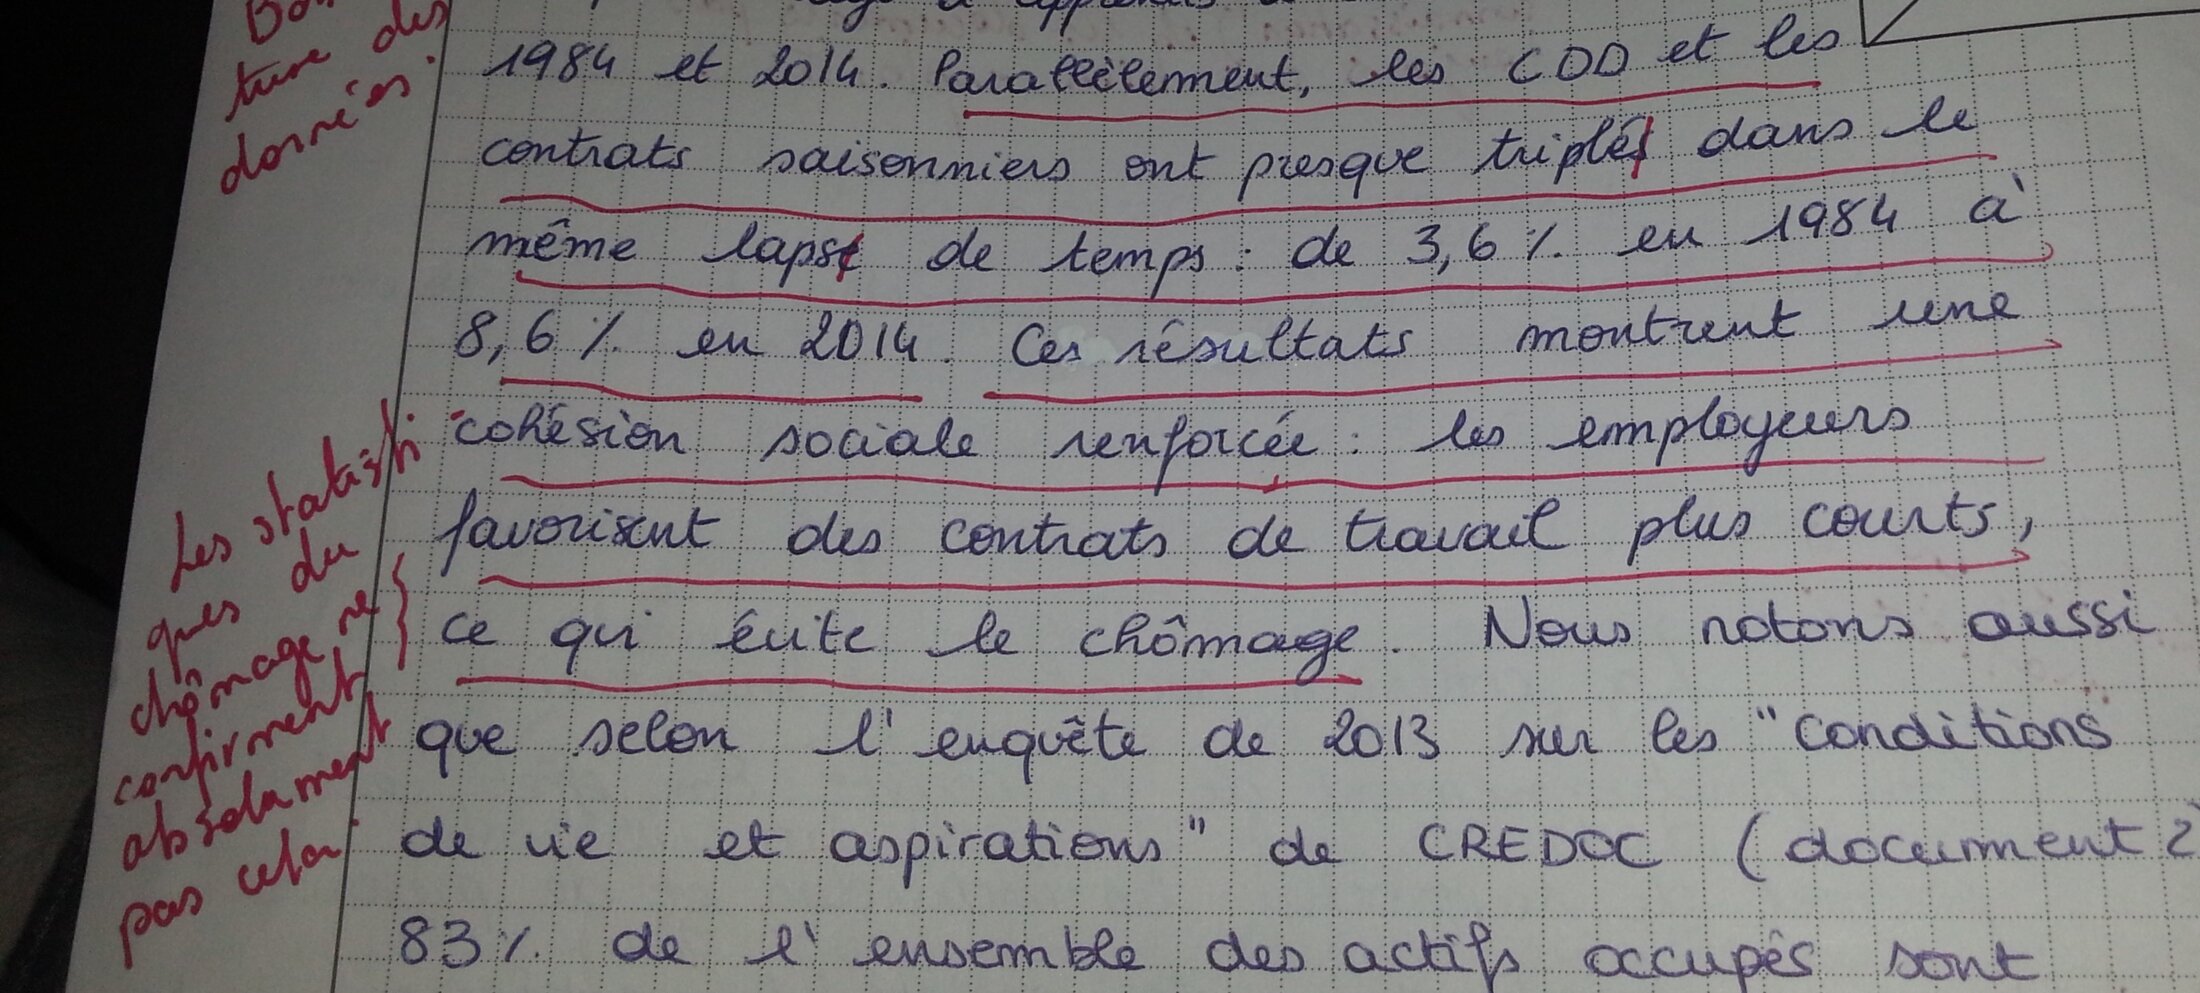 1984 et 2014. Parallèlement, les CDD et les
contrats saisonniers ont presque triplés dans le
même lapse de temps : de 3,6 % en 1984 à
8,6 % en 2014. Ces résultats montrent une
cohésion sociale renforcée : les employeurs
favorisent des contrats de travail plus courts,
ce qui évite le chômage. Nous notons aussi
que selon l'enquête de 2013 sur les "Conditions
de vie et aspirations" de CREDOC (document 2
83 % de l'ensemble des actifs occupés sont
ture des
données.
Les statisti-
ques du
chômage ne
confirment
absolument
pas cela.